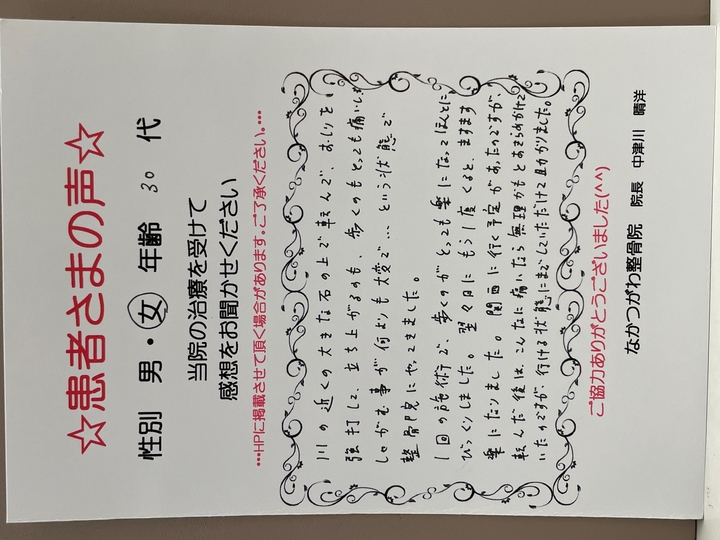 ☆患者さまの声☆
性別 男・女 年齢 30 代
当院の治療を受けて
感想をお聞かせください
…HPに掲載させて頂く場合があります。ご了承ください。…
川の近くの大きな石の上で転んで、おしりを
強打して、立ち上がるのも、歩くのもとっても痛いし、
しゃがむ事が何よりも大変で…という状態で
整骨院にやってきました。
1回の施術で、歩くのがとっても楽になってほんとに
びっくりしました。翌々日にもう1度くると、ますます
楽になりました。関西に行く予定があったのですが、
転んだ後は、こんなに痛いなら無理かもとあきらめかけて
いたのですが、行ける状態にまでしていただけて助かりました。
ご協力ありがとうございました(^^)
なかつがわ整骨院 院長 中津川 晴洋